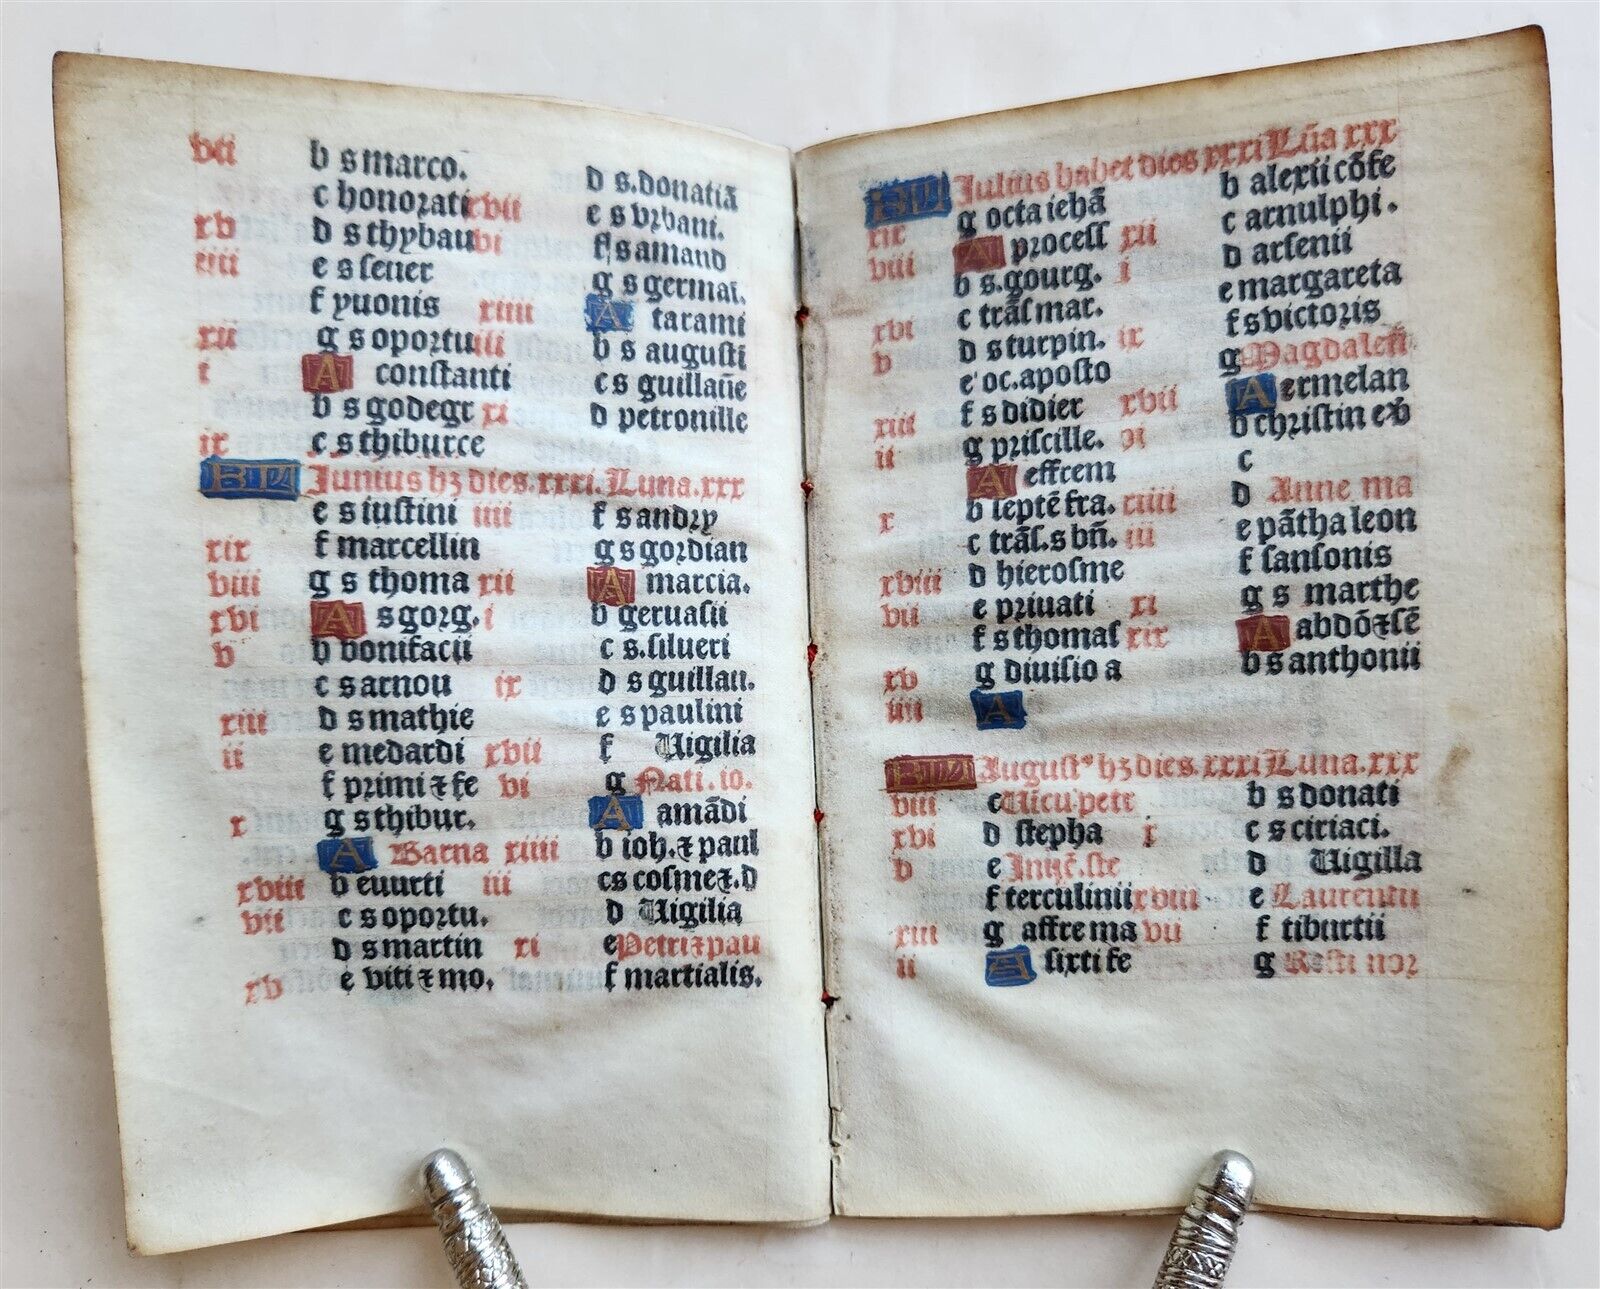 vii b s marco.
c honorati
xv d s thybau
iiii e s seuer
f yuonis
xii g s oportu
i A constanti
b s godegr
ix c s thiburce
xvii d s. donatiā
e s vrbani.
vi f s amand
g s germai.
xiiii A tarami
iii b s augusti
c s guillaūe
xi d petronille
KL Junius hʒ dies. xxxi. Luna. xxx
e s iustini
xix f marcellin
viii g s thoma
xvi A s gorg.
v b bonifacii
c s arnou
xiii d s mathie
ii e medardi
f primi ⁊ fe
x g s thibur.
A Barna
xviii b euurti
vii c s oportu.
d s martin
xv e viti ⁊ mo.
iiii f s andry
g s gordian
xii A marcia.
i b geruasii
c s. silueri
ix d s guillau.
e s paulini
xvii f Uigilia
vi g Nati. io.
A amādi
xiiii b ioh. ⁊ paul
iii c s cosme ⁊. d
d Uigilia
xi e Petri ⁊ pau
f martialis.
KL Julius habet dies xxxi Lūa xxx
xix g octa iehā
viii A process
b s. gourg.
xvi c trāſ mar.
v d s turpin.
e oc. aposto
xiii f s didier
ii g priscille.
A effrem
x b leptē fra.
c trāſ. s bn̄.
xviii d hierosme
vii e priuati
f s thomas
xv g diuisio a
iiii A
b alexii cōfe
c arnulphi.
xii d arsenii
i e margareta
f s victoris
ix g Magdaleñ
A ermelan
xvii b christin exv̄
vi c
d Anne ma
xiiii e pātha leon
iii f sansonis
g s marthe
xi A abdō ⁊ sē
xix b s anthonii
KL Jugustꝰ hʒ dies. xxxi Luna. xxx
viii c Uīcu petr
xvi d stepha
v e Inuē. ste
f terculinii
xiii g affre ma
ii A sixti fe
b s donati
i c s ciriaci.
d Uigilla
xviii e Laurentii
vii f tiburtii
g